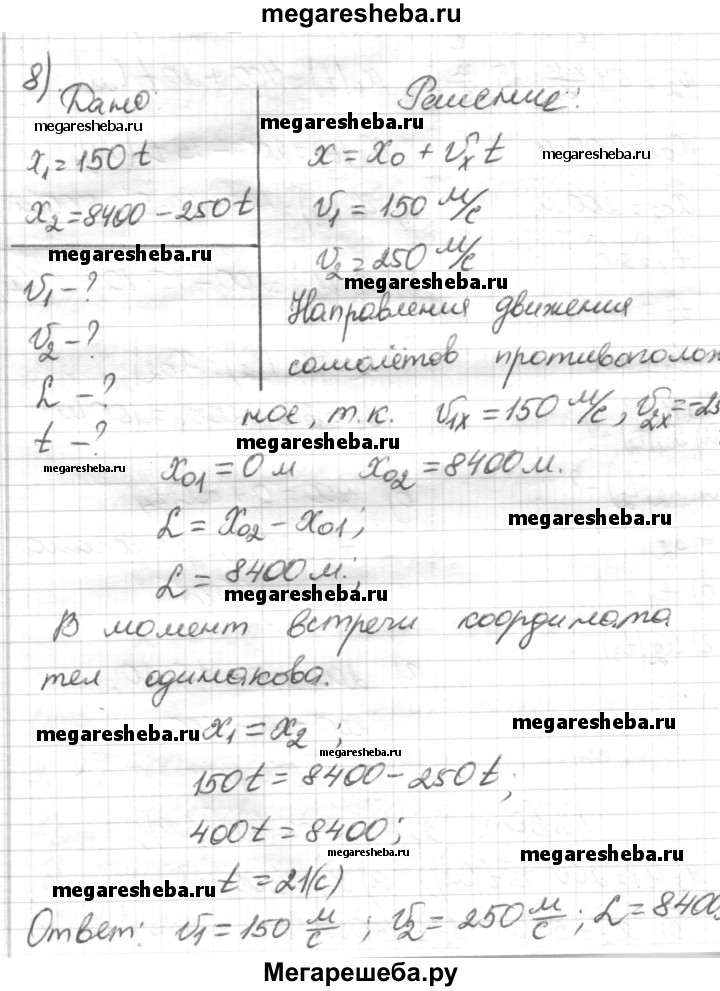 megaresheba.ru
8).
Дано
Решение:
megaresheba.ru
megaresheba.ru
x₁=150t
x = x₀ + vₓt
megaresheba.ru
x₂=8400-250t
v₁ = 150 м/с
megaresheba.ru
v₂=250 м/с
megaresheba.ru
v₁ - ?
Направления движения
v₂ - ?
самолётов противополож
L - ?
ное, т.к. v₁ₓ = 150 м/с, v₂ₓ=-25
t - ?
megaresheba.ru
megaresheba.ru
x₀₁ = 0 м x₀₂ = 8400 м.
L = x₀₂ - x₀₁;
megaresheba.ru
L = 8400 м.;
megaresheba.ru
В момент встречи координата
тел одинакова.
megaresheba.ru
x₁ = x₂ ;
megaresheba.ru
megaresheba.ru
150t = 8400 - 250t;
400t = 8400;
megaresheba.ru
megaresheba.ru
t = 21(с)
megaresheba.ru
Ответ: v₁ = 150 м/с ; v₂ = 250 м/с ; L = 8400
Мегарешеба.ру